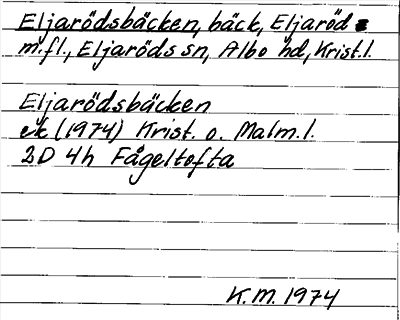 Eljarödsbäcken, bäck, Eljaröd
m.fl., Eljaröds sn, Albo hd, Krist.l.
Eljarödsbäcken
ek (1974) Krist. o. Malm.l.
2D 4h Fågeltofta
K.M. 1974